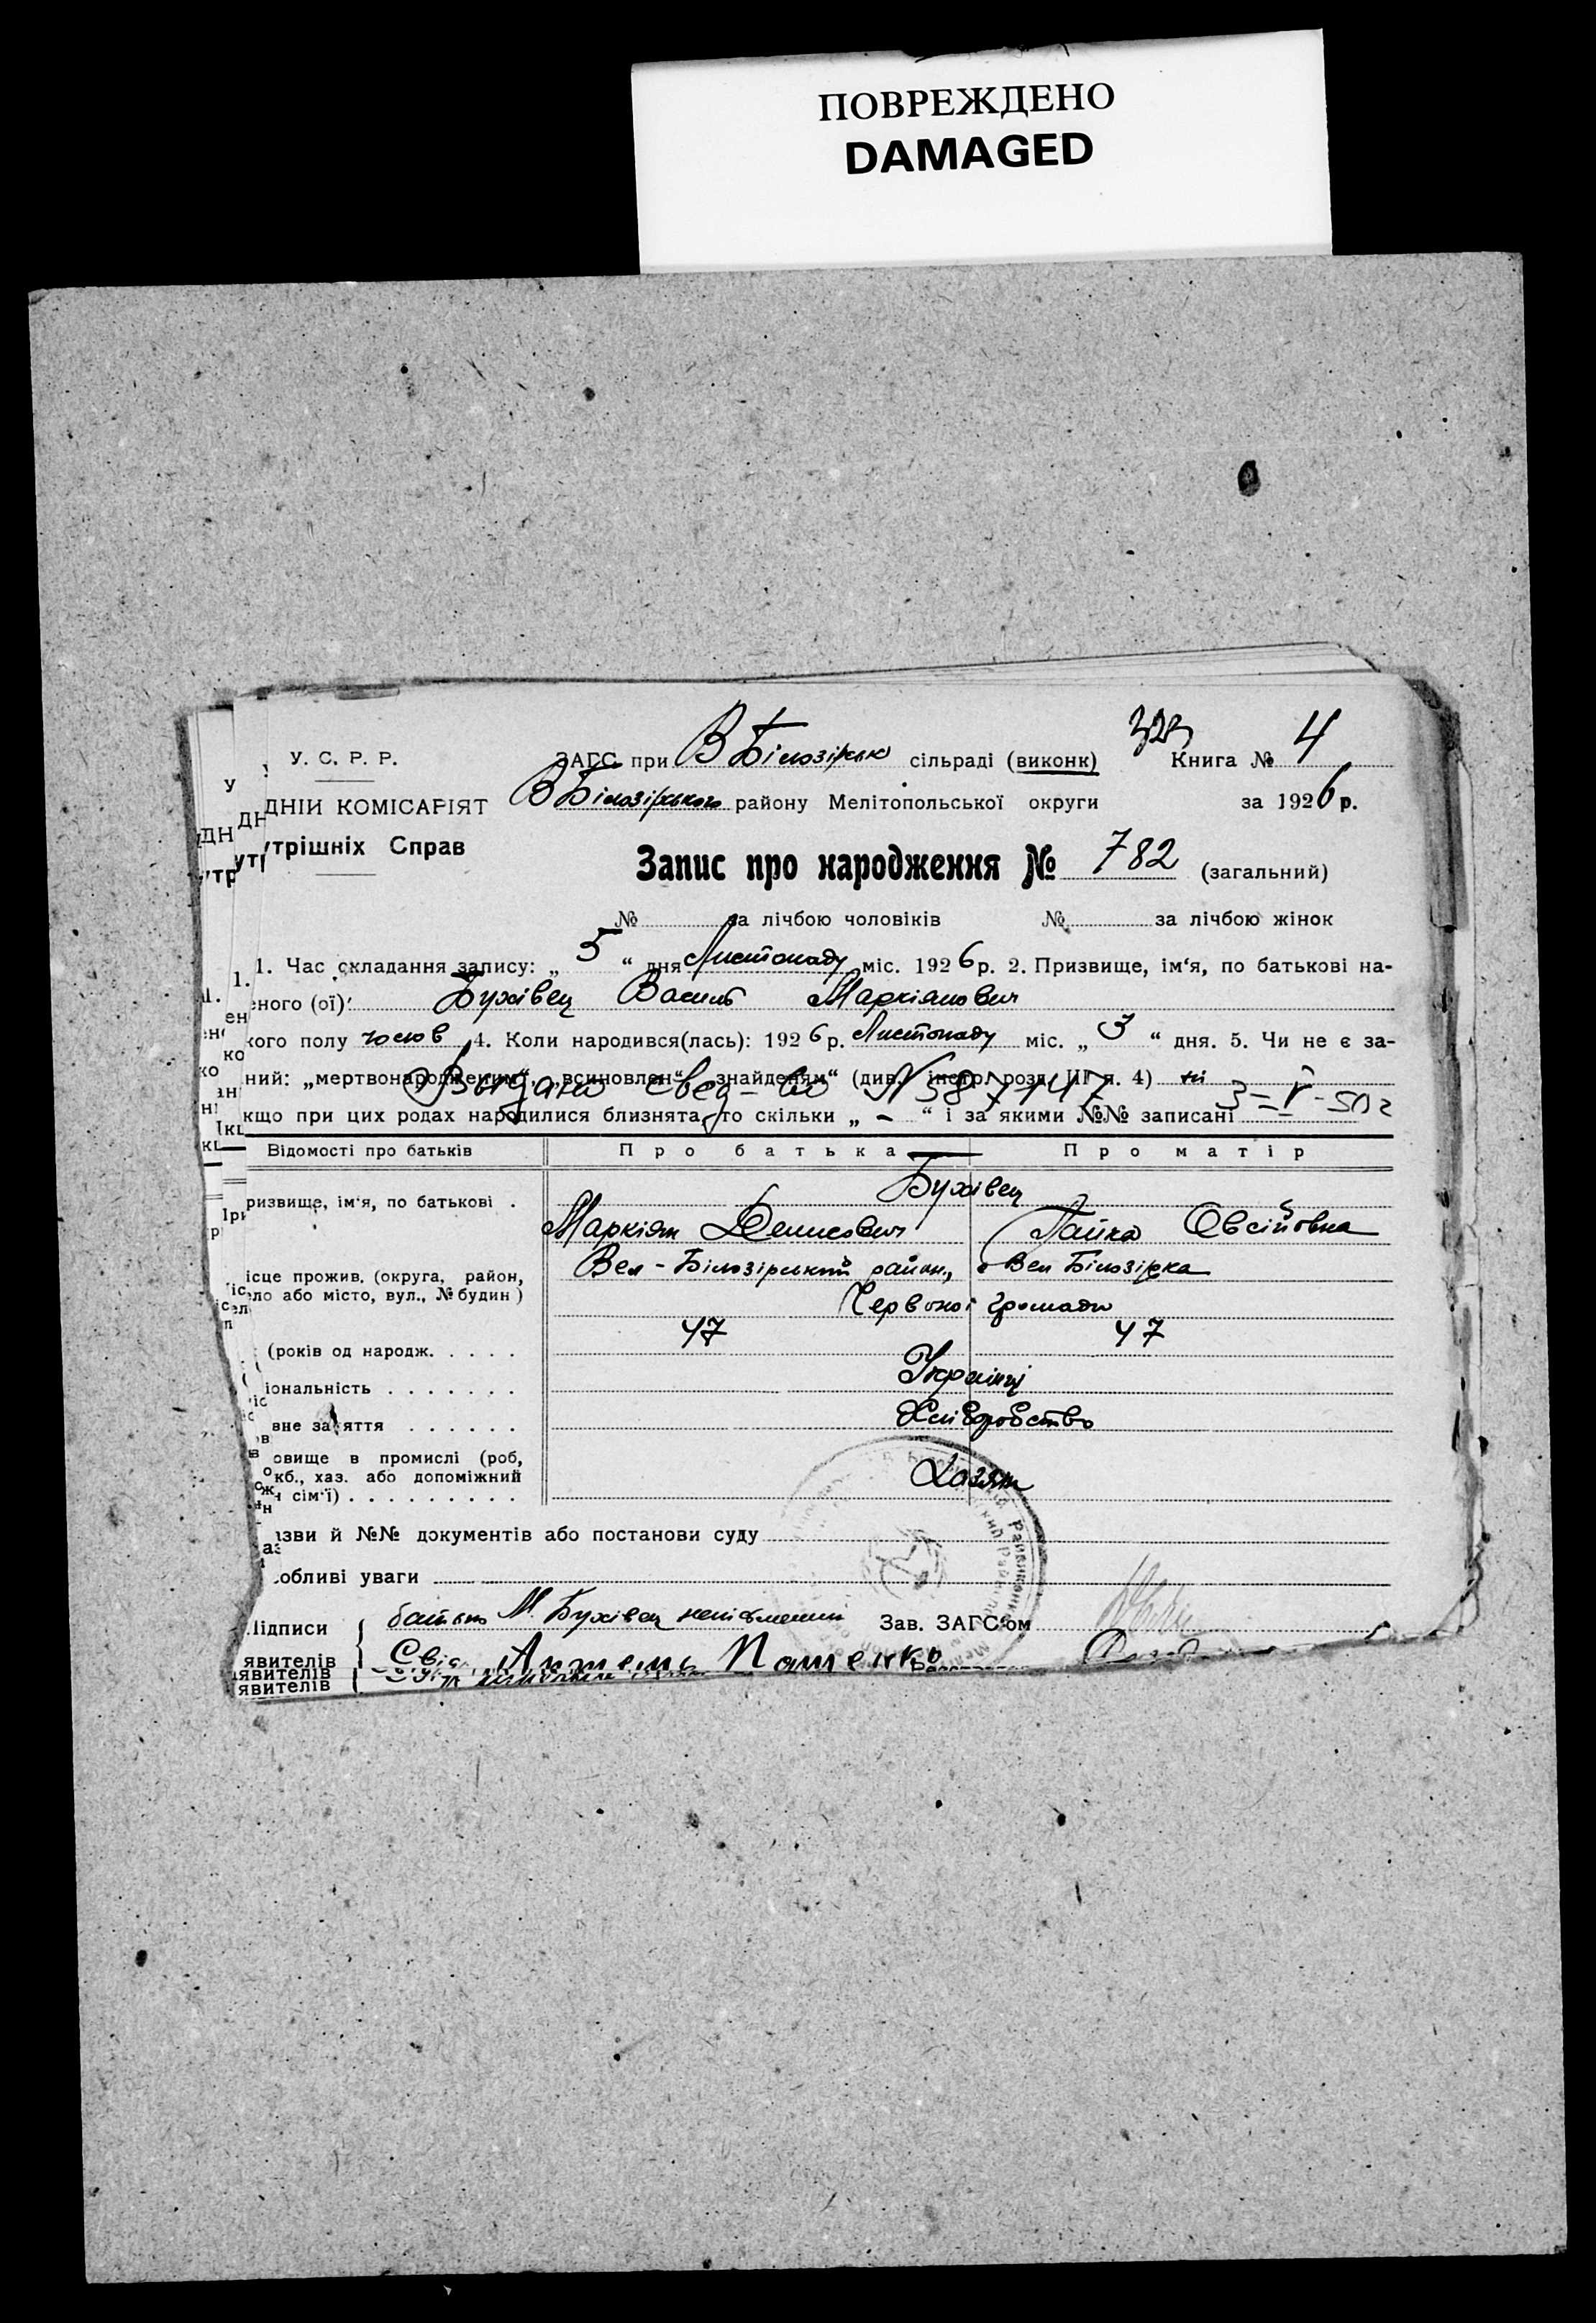 ПОВРЕЖДЕНО
DAMAGED
323
У. С. Р. Р. ЗАГС при В Білозірськ сільраді (виконк) Книга № 4
ДНІЙ КОМІСАРІЯТ В Білозірського району Мелітопольської округи за 1926 р.
утрішніх Справ
Запис про народження № 782 (загальний)
№ за лічбою чоловіків № за лічбою жінок
1. Час складання запису: „ 5 “ дня Листопаду міс. 1926 р. 2. Призвище, ім‘я, по батькові на-
еного (ої) Бухівец Василь Маркіянович
кого полу чолов 4. Коли народився(лась): 1926 р. Листопаду міс. „ 3 “ дня. 5. Чи не є за-
ний: „мертвонародженим“, „всиновлен“ „знайденям“ (див. інстр. розд. III п. 4) ні
Выдано свед-во N 387147 3=V-50 г
кщо при цих родах народилися близнята, то скільки „ – “ і за якими №№ записані
Відомості про батьків Про батька Про матір
ризвище, ім‘я, по батькові . Бухівец
Маркіян Денисович Овсіїовна
ісце прожив. (округа, район, Вел-Білозірський район, Вел Білозірка
ело або місто, вул., № будин) Червоної громади
(років од народж. . . . . 47 47
іональність . . . . . . . Українці
вне заняття . . . . . . Хліборобство
овище в промислі (роб,
кб., хаз. або допоміжний Хазяін
сім‘ї) . . . . . . . . .
зви й №№ документів або постанови суду
обливі уваги
Підписи батько М. Бухівец неписьменни Зав. ЗАГС‘ом
явителів Свід
явителів
явителів